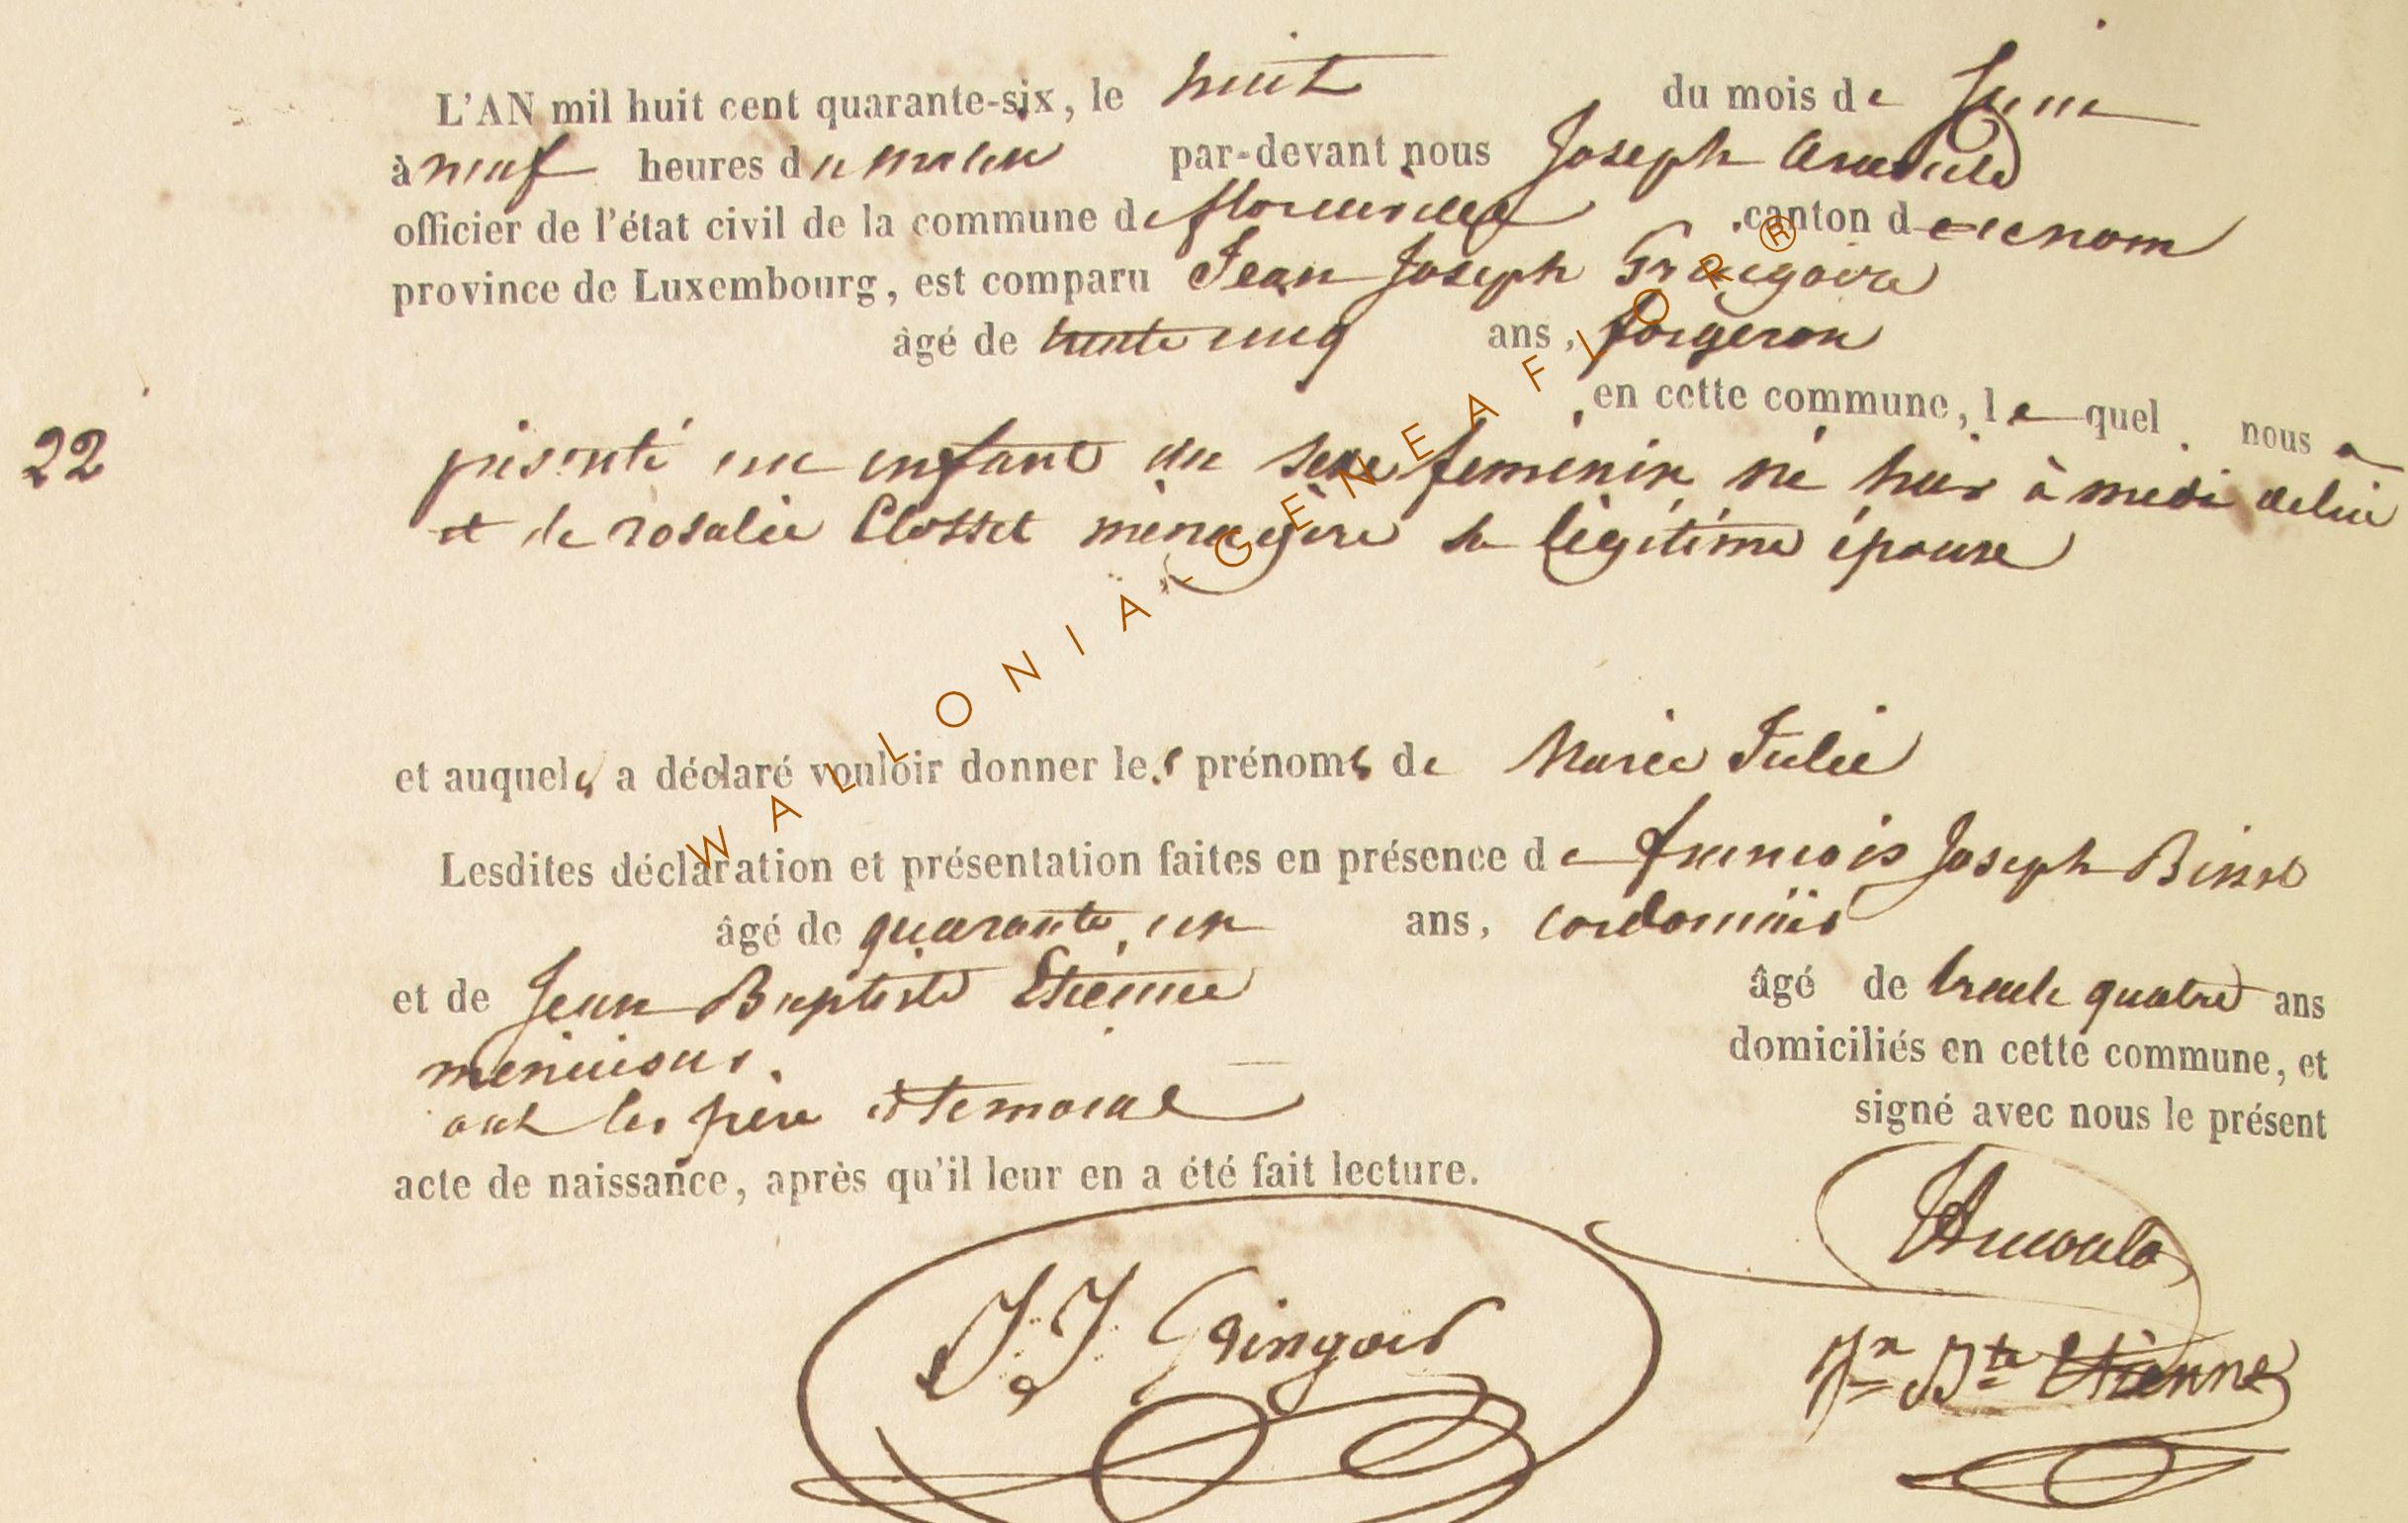 L'AN mil huit cent quarante-six, le huit du mois de Juin
à neuf heures du matin par-devant nous Joseph Arnould
officier de l'état civil de la commune de florenville canton de ce nom
province de Luxembourg, est comparu Jean Joseph Gringoire
âgé de trente cinq ans, forgeron
en cette commune, le quel nous a
22
présenté un enfant du sexe féminin né hier à midi de lui
et de rosalie Closset ménagère sa légitime épouse
et auquel a déclaré vouloir donner les prénoms de Marie Julie
Lesdites déclaration et présentation faites en présence de francois Joseph
âgé de quarante un ans, cordonnier
et de Jean Baptiste Etienne âgé de trente quatre ans
menuisier. domiciliés en cette commune, et
ont les père et temoins signé avec nous le présent
acte de naissance, après qu'il leur en a été fait lecture.
JArnould
J. J. Gringoire
Jn Bte Etienne
WALLONIA-GENEAFLOR®